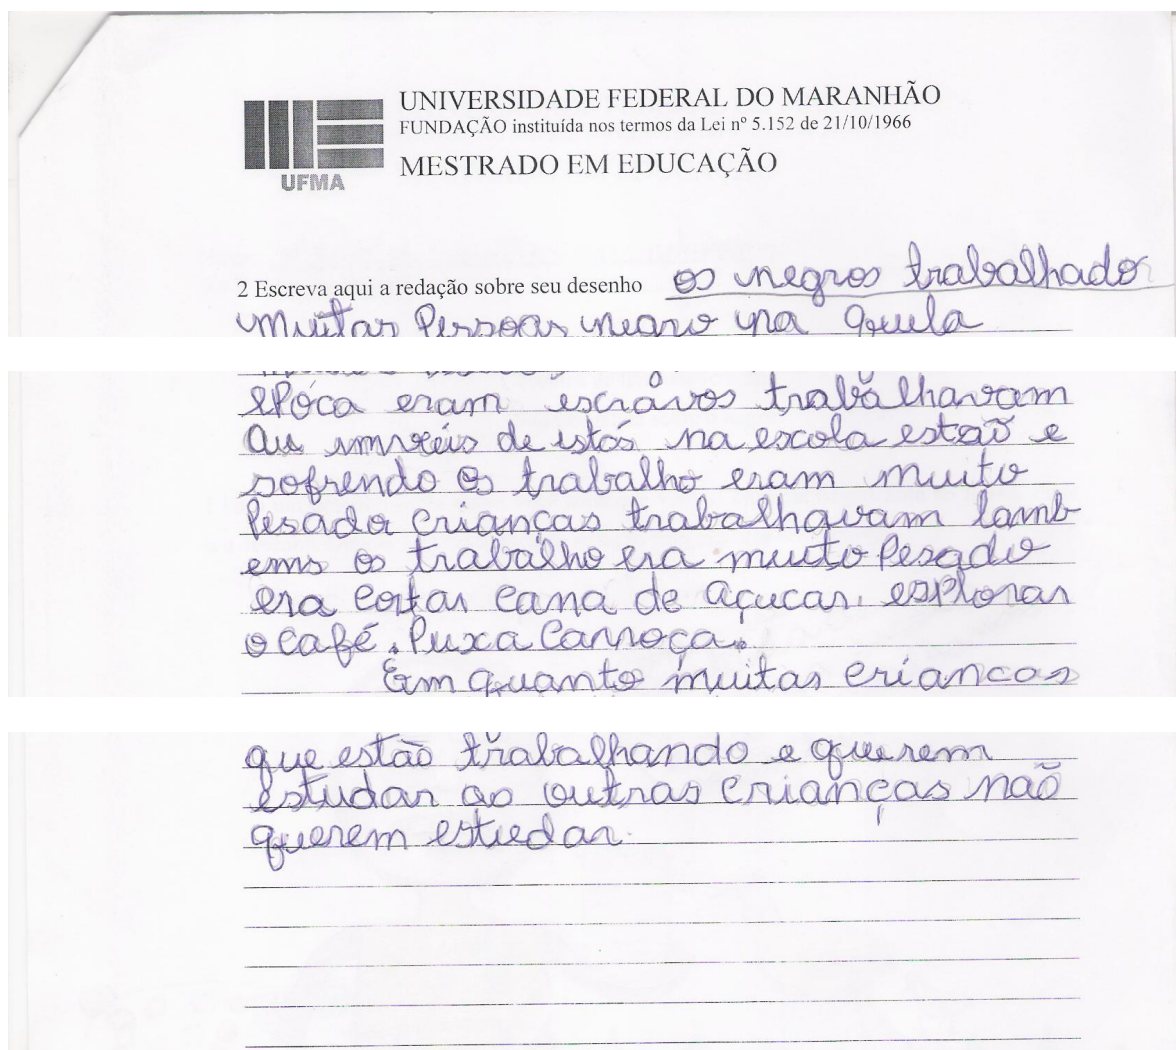 UNIVERSIDADE FEDERAL DO MARANHÃO
FUNDAÇÃO instituída nos termos da Lei nº 5.152 de 21/10/1966
MESTRADO EM EDUCAÇÃO
UFMA
2 Escreva aqui a redação sobre seu desenho os negros trabalhador
muitas Pessoas negro na quela
ePóca eram escravos trabalhavam
au imvéis de estás na escola estaõ e
sofrendo os trabalho eram muito
Pesada crianças trabalhavam tamb
ems os trabalho era muito Pesado
era cortar cana de açucar. esplorar
o café. Puxa Carroça.
Em quanto muitas criancas
que estão trabalhando e querem
estudar ao outras crianças não
querem estudar.